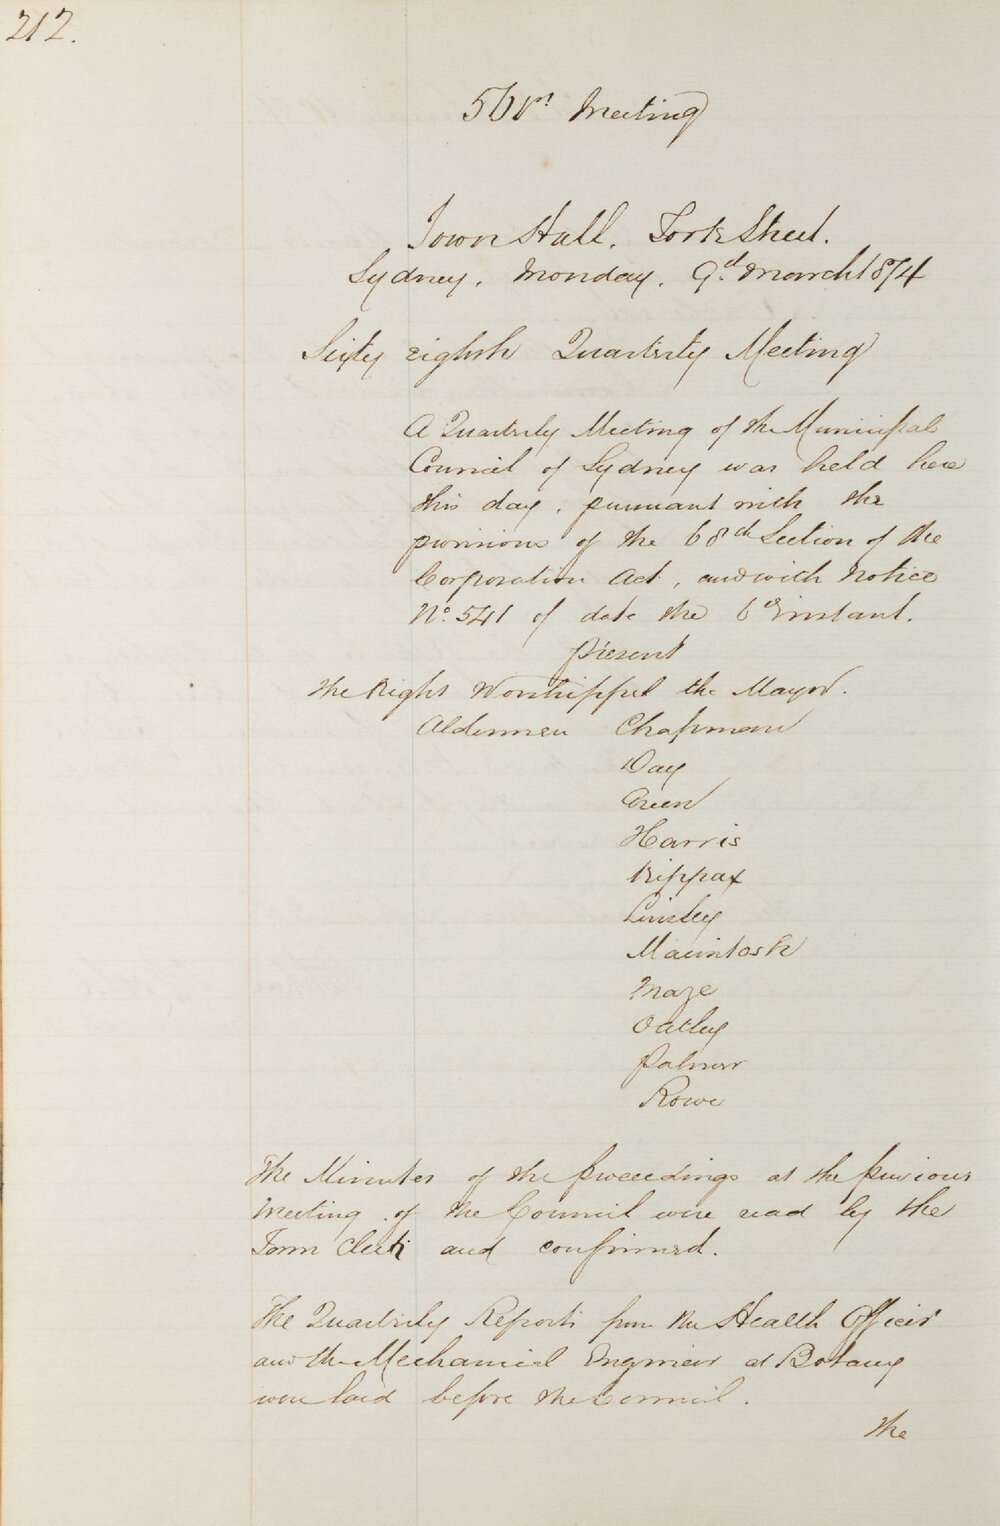 212.
561st Meeting
Town Hall, York Street.
Sydney, Monday, 9th March 1874
Sixty eighth Quarterly Meeting
A Quarterly Meeting of the Municipal
Council of Sydney was held here
this day, pursuant with the
provisions of the 68th Section of the
Corporation Act, and with Notice
No. 541 of date the 6th instant.
Present
The Right Worshipful the Mayor.
Aldermen Chapman
Day
Green
Harris
Kippax
Linsley
Macintosh
Maze
Oatley
Palmer
Rowe
The Minutes of the proceedings at the previous
Meeting of the Council were read by the
Town Clerk and confirmed.
The Quarterly Reports from the Health Officer
and the Mechanical Engineer at Botany
were laid before the Council.
The